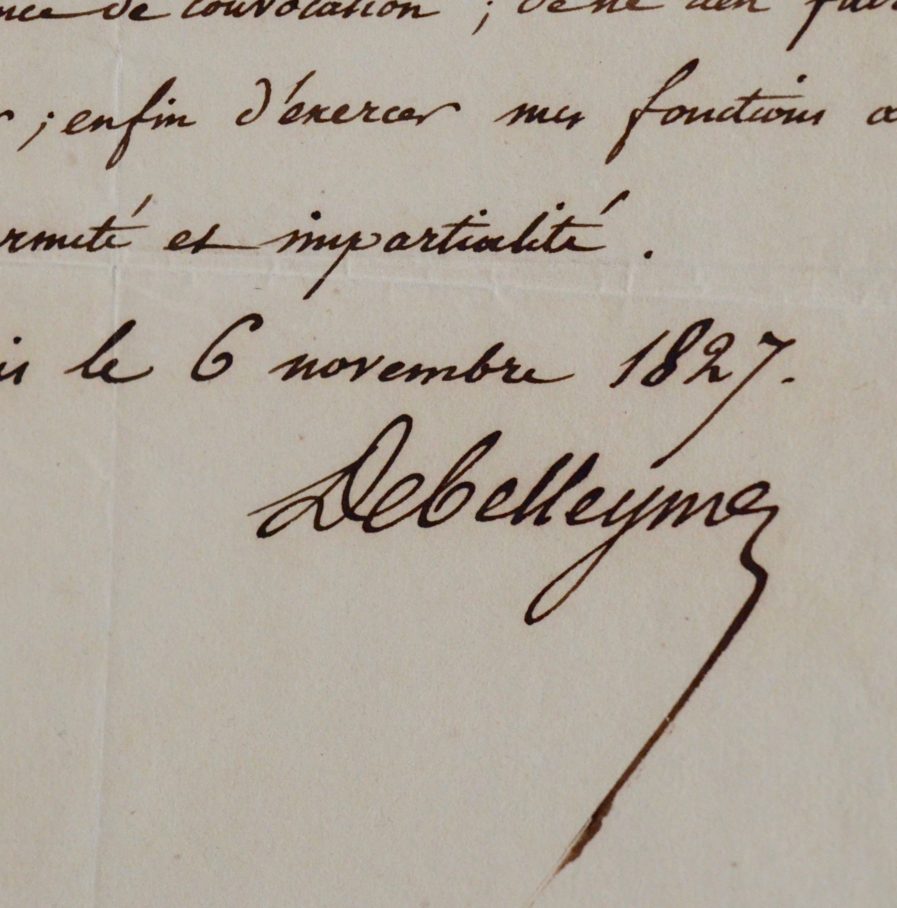 nce de convocation ; de ne rien fai
r ; enfin d'exercer mes fonctions a
rmeté et impartialité .
is le 6 novembre 1827.
Debelleyme